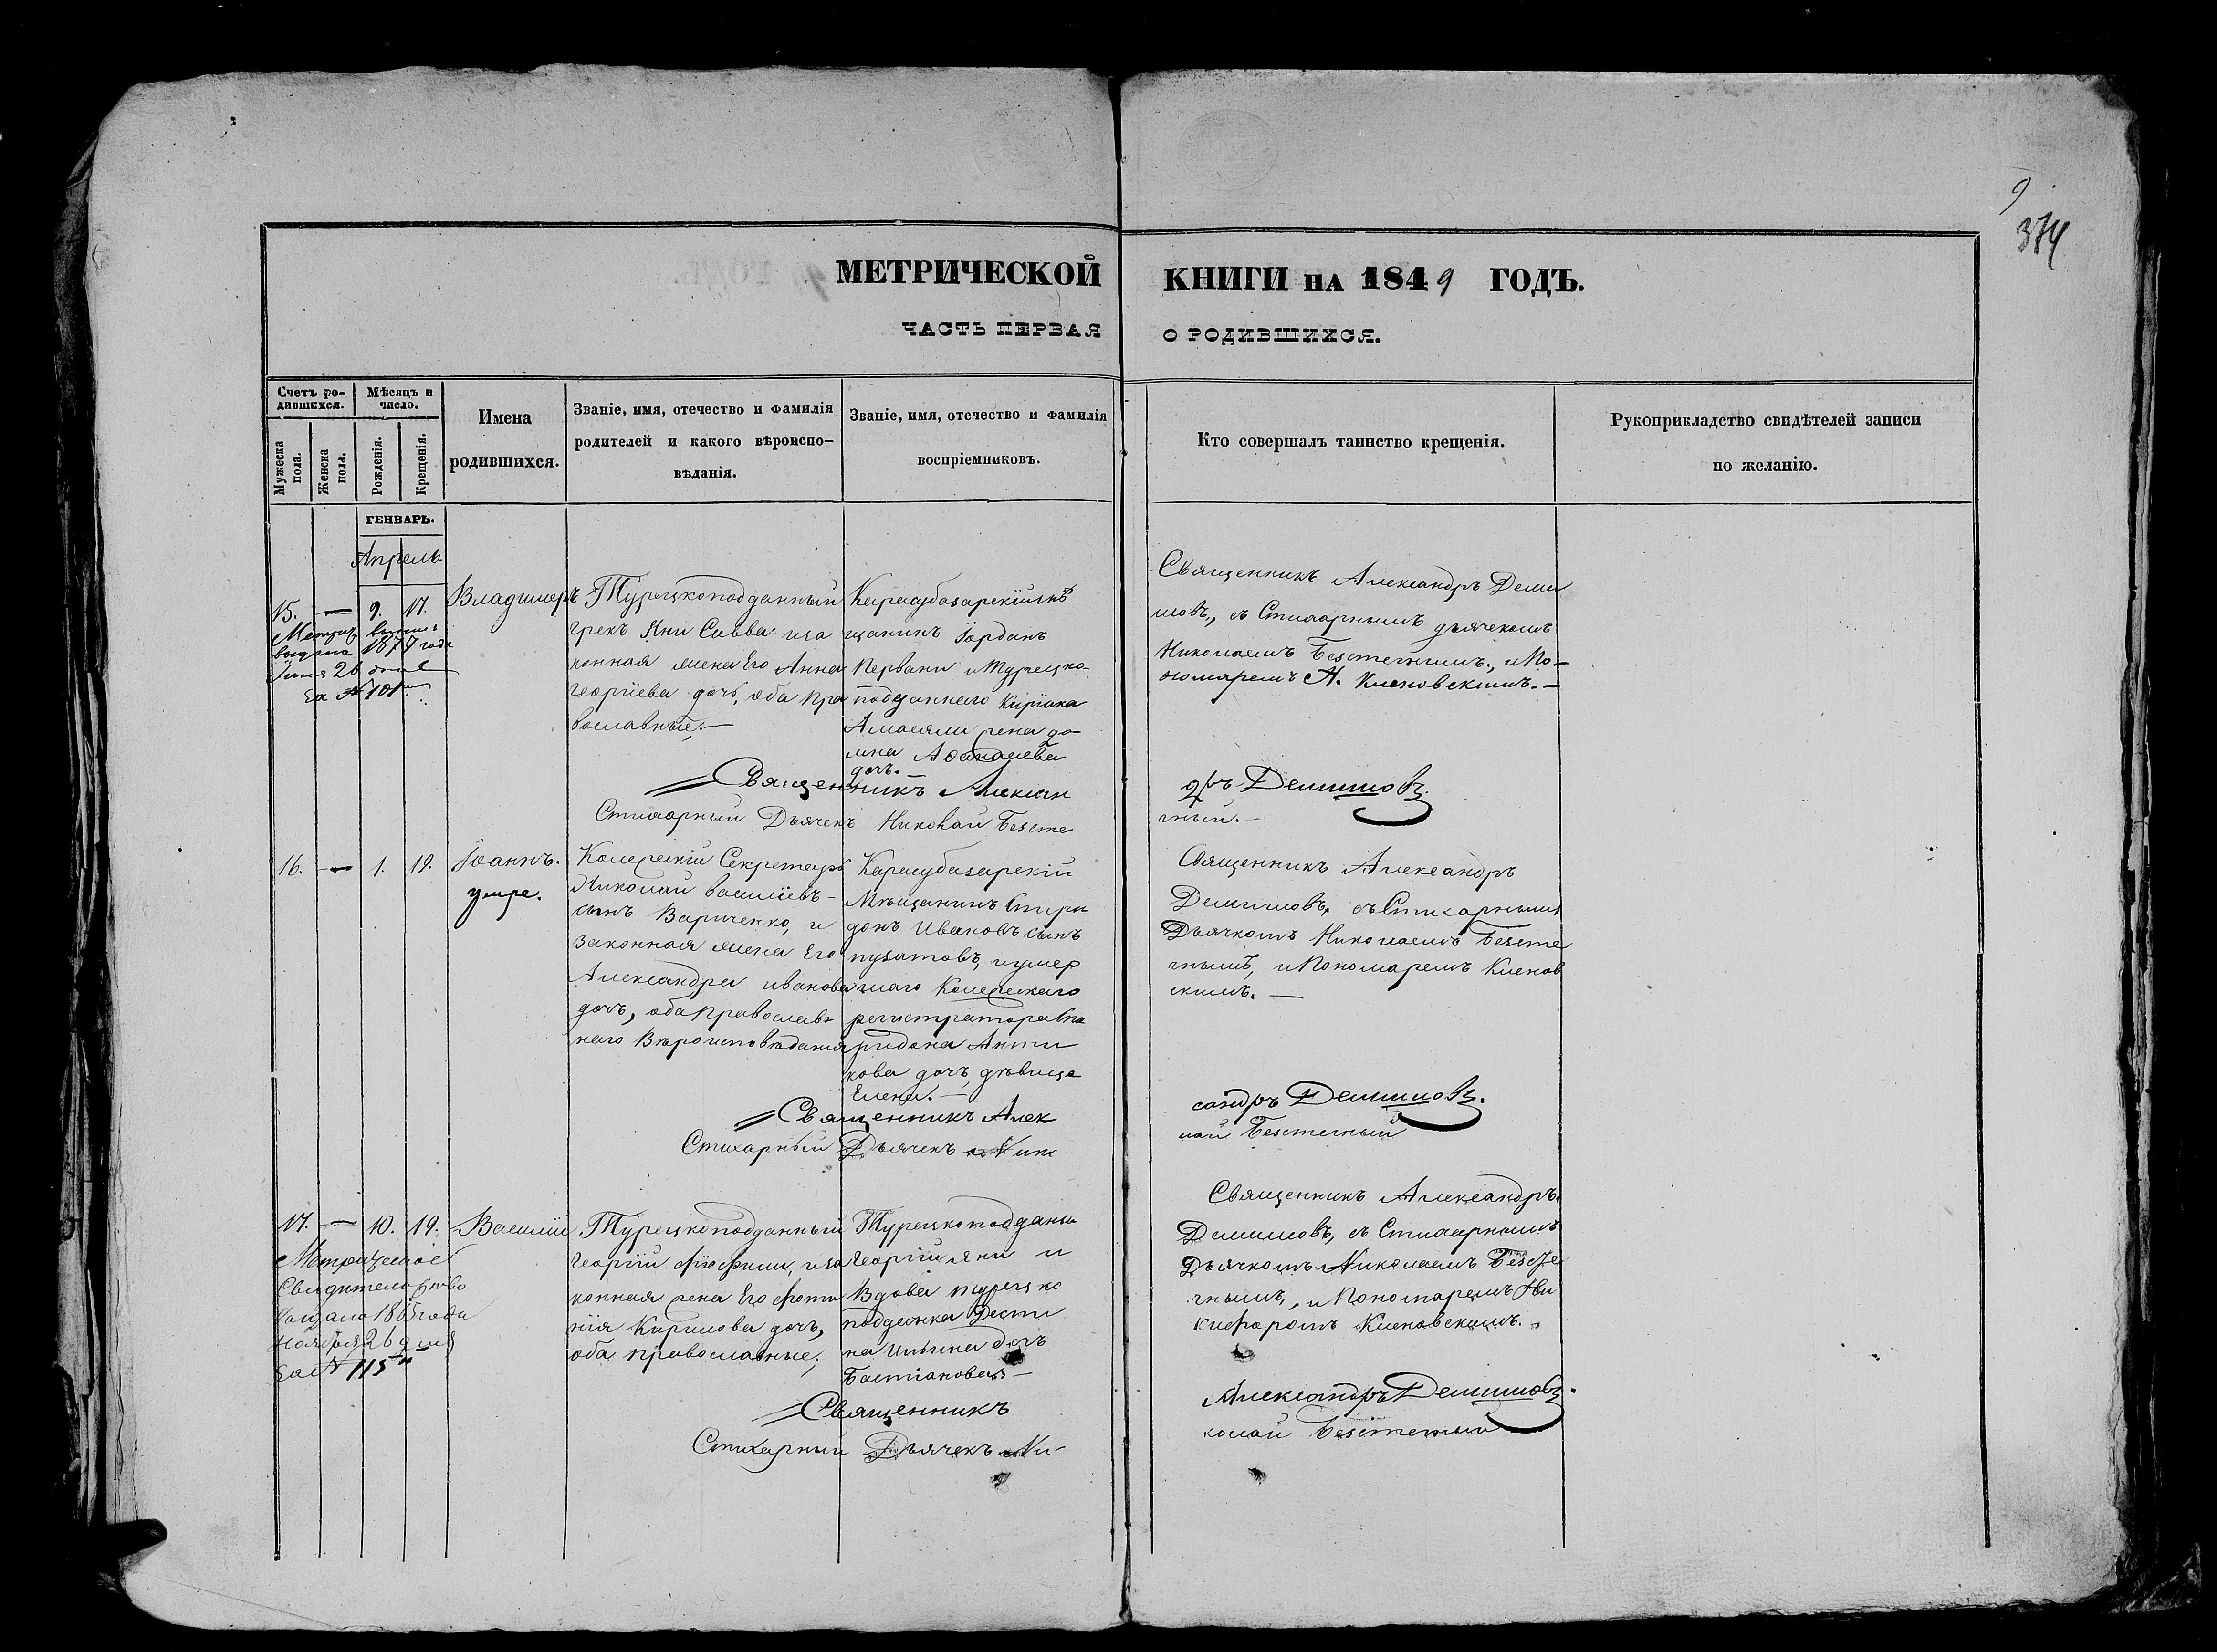 9
374
МЕТРИЧЕСКОЙ КНИГИ НА 1849 ГОДЪ.
ЧАСТЬ ПЕРВАЯ О РОДИВШИХСЯ.
Счетъ ро-
дившихся.
Мужеска пола.
Женска пола.
Мѣсяцъ и
число.
Рожденія.
Крещенія.
Имена
родившихся.
Званіе, имя, отечество и фамилія
родителей и какого вѣроиспо-
вѣданія.
Званіе, имя, отечество и фамилія
воспріемниковъ.
Кто совершалъ таинство крещенія.
Рукоприкладство свидѣтелей записи
по желанію.
ГЕНВАРЬ.
Апрель
15. — 9. 17.
выдана 1877 года
26 дня
за № 101
Владимеръ
Турецкоподданный
грекъ Яни Савва и за
конная жена Его Анна
Георгіева дочь, оба пра
вославные. —
Карасубазарскій мѣ
щанинъ Іорданъ
Первани и Турецко-
подданнаго Киріака
жена До
мна
дочь. —
Священникъ Александръ Деми
шовъ, съ Стихарнымъ дьячкомъ
Николаемъ Безстечнымъ, и По-
номаремъ Н. Кисновскимъ. —
Священникъ Алексан
дръ Демишовъ.
Стихарный Дьячекъ Николай Безсте
чный. —
16. — 1. 19.
Іоаннъ.
умре.
Колежскій Секретарь
Николай Васильевъ-
сынъ Вариченко, и
законная жена Его
Александра Иванова
дочь, оба православ
наго Вѣроисповѣданія
Карасубазарскій
Мѣщанинъ Спири
донъ Ивановъ сынъ
Пузатовъ, и умер
шаго Колежскаго
регистратора Спи
ридона Анти
кова дочь дѣвица
Елена. —
Священникъ Александръ
Демишовъ, съ Стихарнымъ
Дьячкомъ Николаемъ Безсте
чнымъ, и Пономаремъ Киснов
скимъ. —
Священникъ Алек
сандръ Демишовъ.
Стихарный Дьячекъ Нико
лай Безстечный
17. — 10. 19.
Метрическое
Свидетельство
выдано 1865 года
Ноября 26 дня
за № 115
Василій
Турецкоподданный
Георгій и за
конная жена Его Фоти
нія Кирилова дочь,
оба православные;
Турецкоподданы
Георгій Яни и
Вдова турецко
подданка Дести
на Ильина дочь
Бастіановая —
Священникъ Александръ
Демишовъ, съ Стихарнымъ
Дьячкомъ Николаемъ Безсте
чнымъ, и Пономаремъ Ни
кифоромъ Кисновскимъ.
Священникъ
Александръ Демишовъ.
Стихарный Дьячекъ Ни-
колай Безстечный